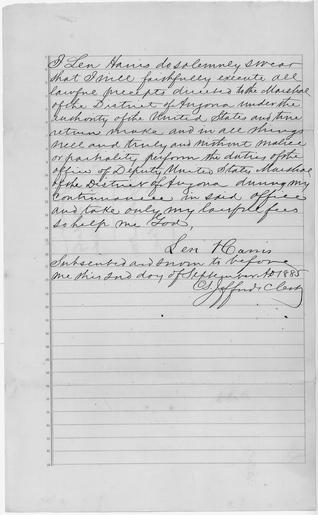 I Len Harris do solemnly swear
that I will faithfully execute all
lawful precepts directed to the Marshal
of the District of Arizona under the
authority of the United States and true
return make and in all things
well and truly and without malice
or partiality perform the duties of the
office of Deputy United States Marshal
of the District of Arizona during my
continuance in said office
and take only my lawful fees
so help me God,
Len Harris
Subscribed and sworn to before
me this 2nd day of September AD 1885
Jeffords Clerk